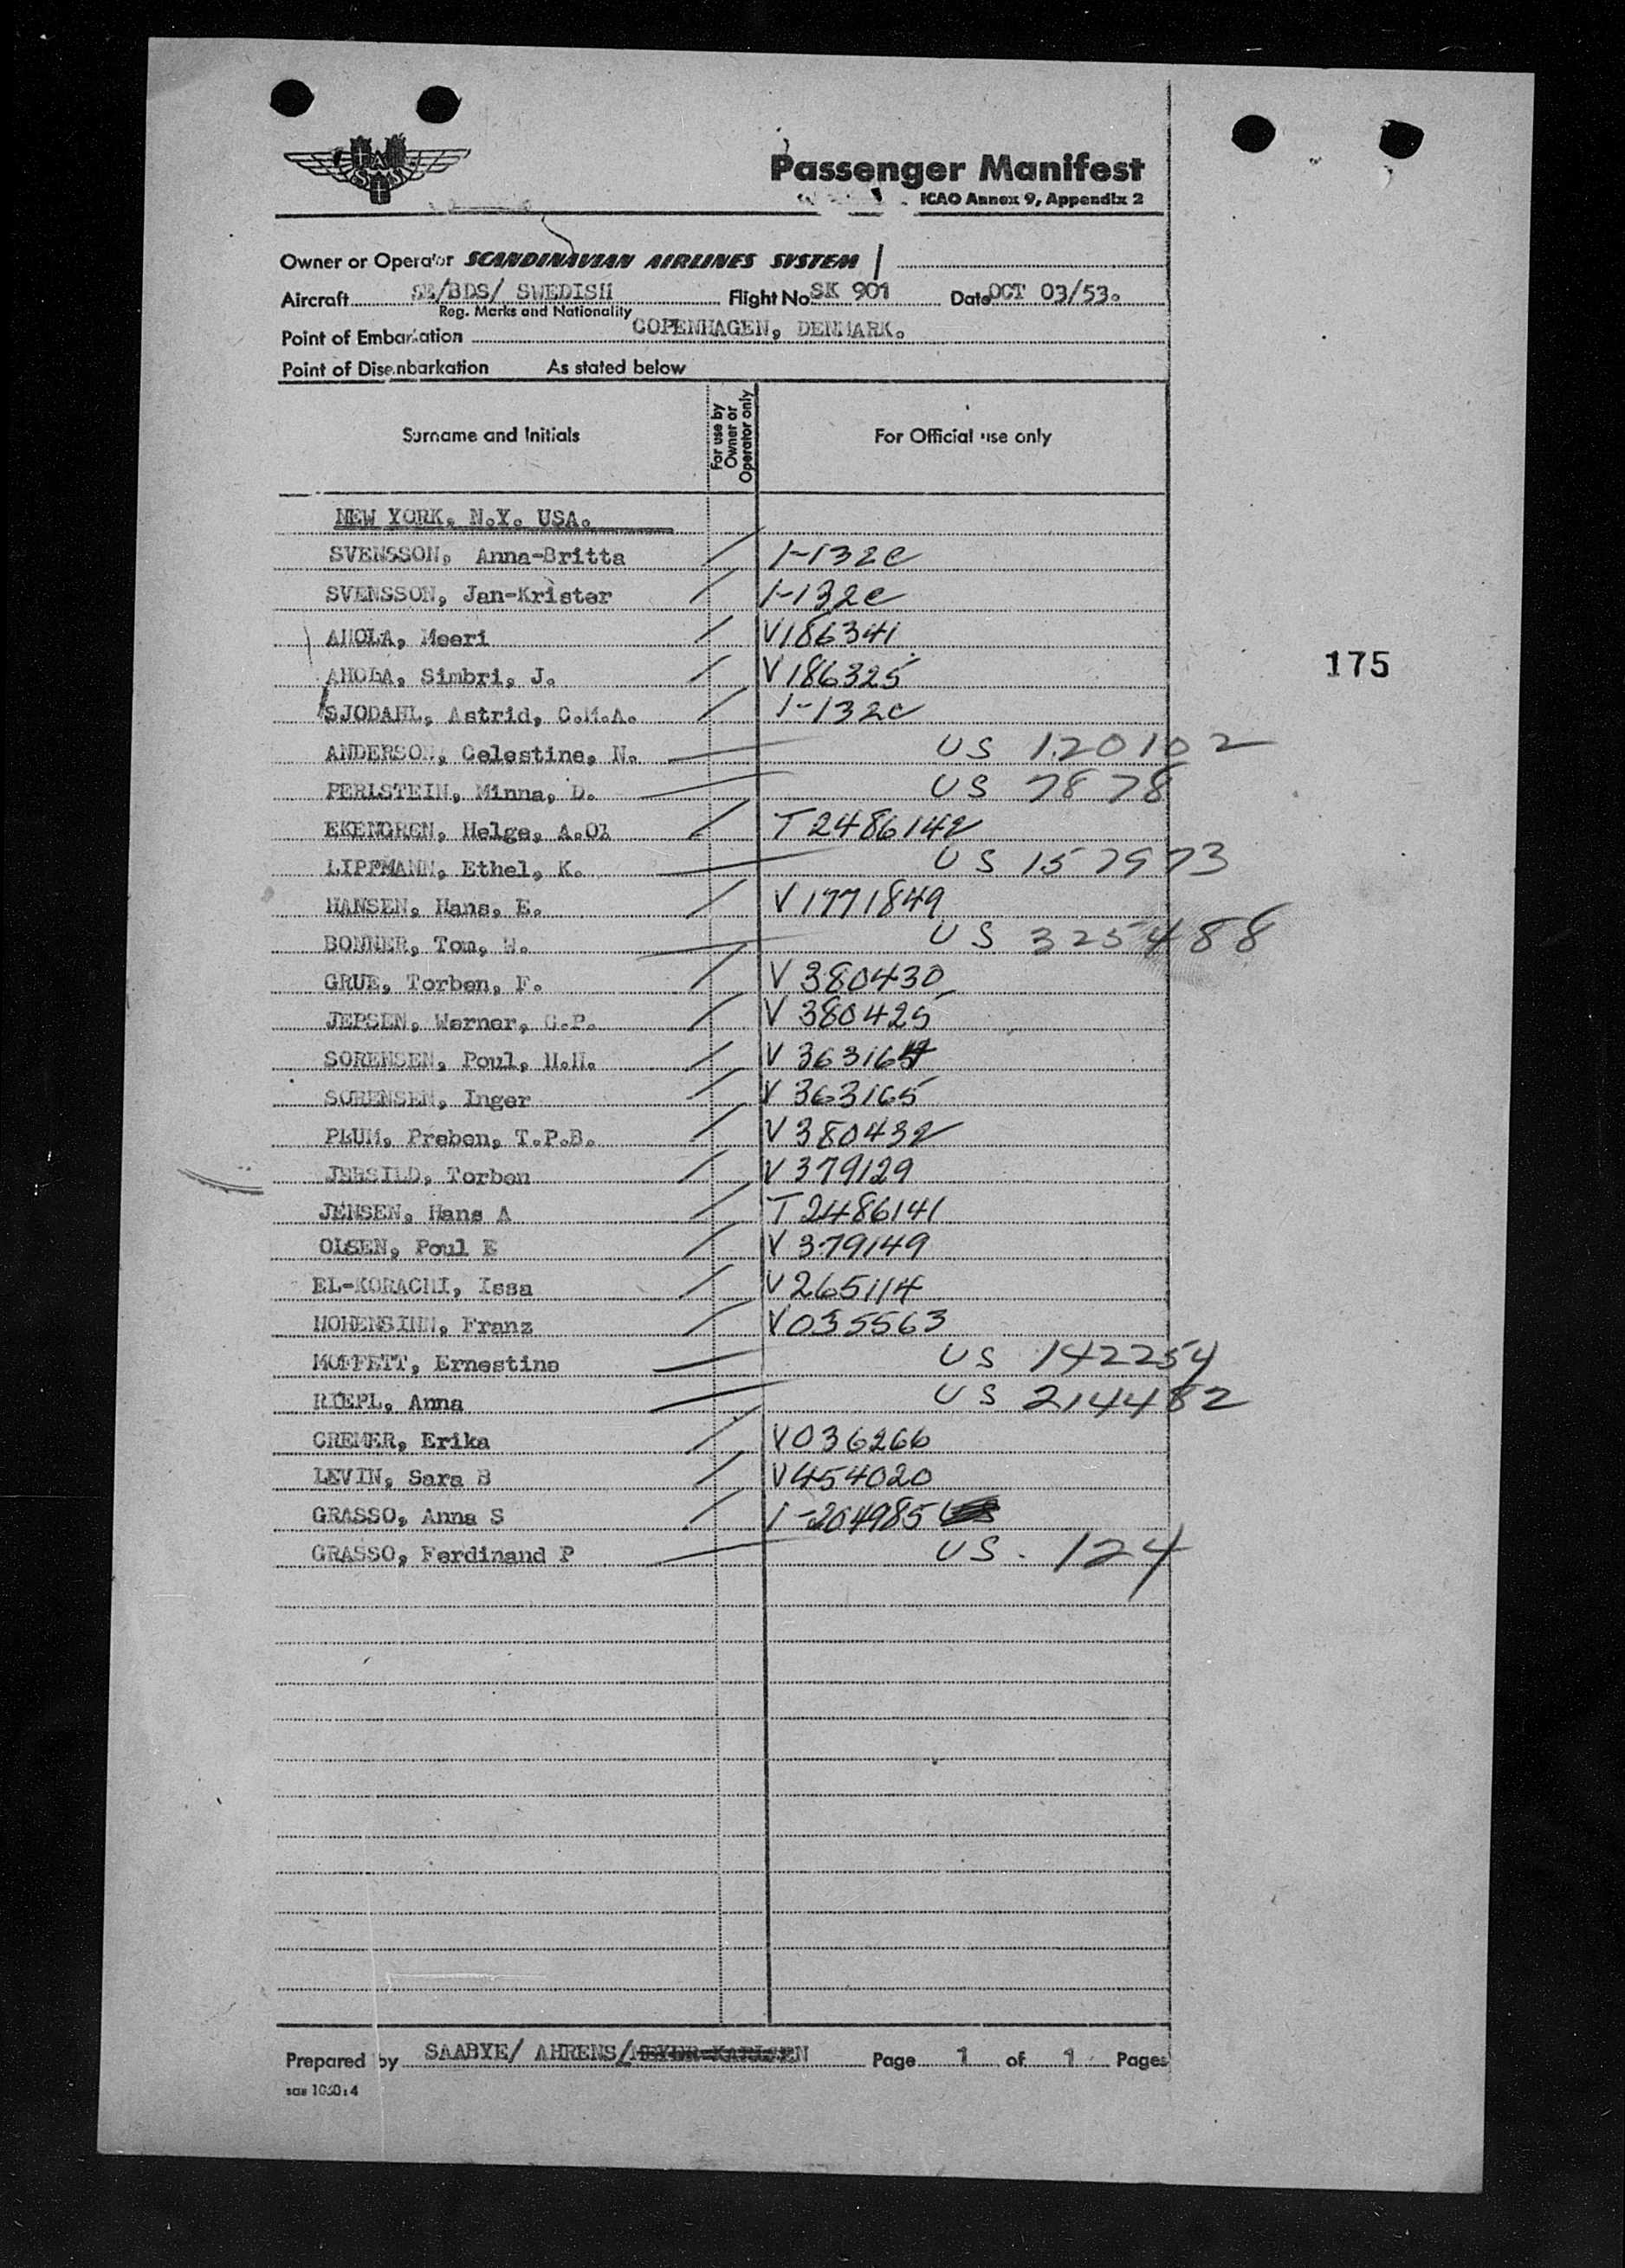 SAS
Passenger Manifest
ICAO Annex 9, Appendix 2
Owner or Operator SCANDINAVIAN AIRLINES SYSTEM
Aircraft SE/BDS/ SWEDISH Flight No SK 901 Date OCT 03/53.
Reg. Marks and Nationality
Point of Embarkation COPENHAGEN, DENMARK.
Point of Disembarkation As stated below
Surname and Initials For use by Owner or Operator only For Official use only
NEW YORK, N.Y. USA.
SVENSSON, Anna-Britta / 1-132c
SVENSSON, Jan-Krister / 1-132c
AHOLA, Meeri / V186341
175
AHOLA, Simbri, J. / V186325
SJODAHL, Astrid, C.M.A. / 1-132c
ANDERSON, Celestine, N. — US 120102
PERLSTEIN, Minna, D. — US 7878
EKENGREN, Helge, A.Ol / T2486142
LIPPMANN, Ethel, K. — US 157973
HANSEN, Hans, E. / V1771849
BONNER, Tom, W. — US 325488
GRUE, Torben, F. / V 380430
JEPSEN, Werner, G.P. / V 380425
SORENSEN, Poul, H.H. / V 363164
SORENSEN, Inger / V 363165
PLUM, Preben, T.P.B. / V380432
JERSILD, Torben / V379129
JENSEN, Hans A / T2486141
OLSEN, Poul E / V 379149
EL-KORACHI, Issa / V265114
HOHENSINN, Franz / V035563
MOFFETT, Ernestine — US 142254
RIEPL, Anna — US 214482
CREMER, Erika / V036266
LEVIN, Sara B / V454020
GRASSO, Anna S / 1-204985
GRASSO, Ferdinand P — US. 124
Prepared by SAABYE/ AHRENS/ Page 1 of 1 Pages
sas 1030:4